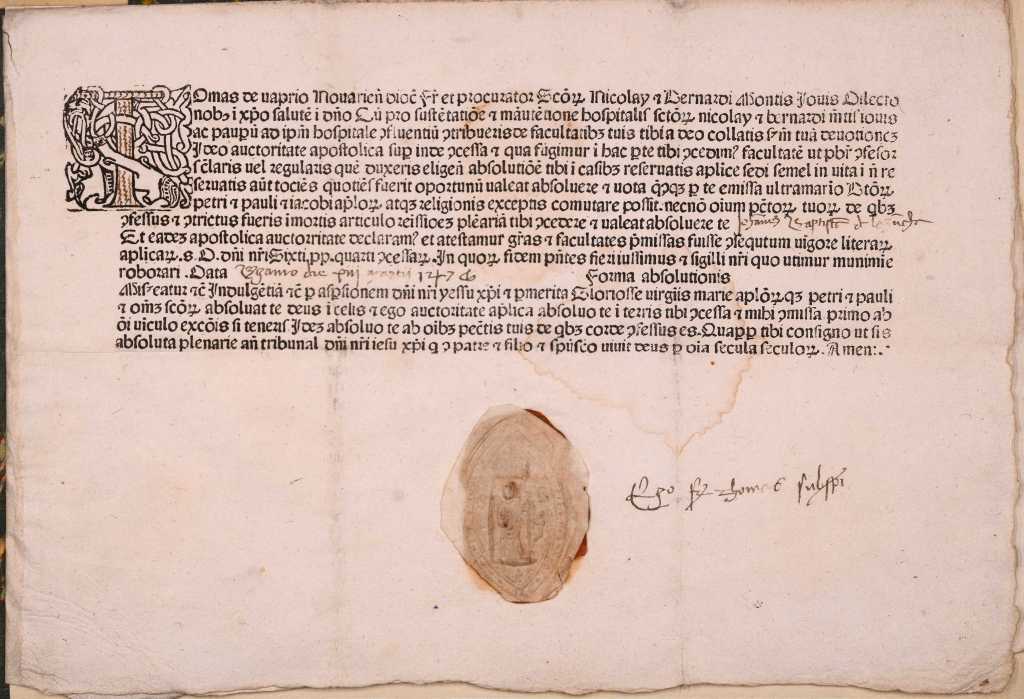 TOmas de vaprio Novarieñ dioc̃ Fr̃ et procurator Sctõꝝ Nicolay ⁊ Bernardi Montis Iouis Dilecto
nobꝫ ĩ xp̃o salutẽ ĩ dño Cũ pro sustẽtatiõe ⁊ mãutẽtione hospitalis sctõꝝ nicolay ⁊ bernardi mõtis iouis
ac paupeꝝ ad ip̃m hospitale ꝯfluentiũ ꝯtribueris de facultatibꝫ tuis tibi a deo collatis ẜm tuã deuotioneꝫ
Ideo auctoritate apostolica suꝑ inde ꝯcessa ⁊ qua fũgimur ĩ hac ꝑte tibi ꝯcedimꝰ facultatẽ ut pb̃r ꝯfesor
sẽclaris uel regularis quẽ duxeris eligeñ absolutiõẽ tibi ĩ casibꝫ reseruatis aplice sedi semel in uita ĩ ñ re
seruatis aũt tociẽs quotiẽs fuerit oportunũ ualeat absoluere ⁊ uota q̃cꝫ ꝑ te emissa ultramario Btõꝝ
petri ⁊ pauli ⁊ iacobi ap̃loꝝ atqꝫ religionis exceptis comutare possit. necnõ oĩum pctõꝝ tuoꝝ de qbꝫ
ꝯfessus ⁊ ꝯtrictus fueris ĩ mortis articulo reĩssiõeꝫ plẽariã tibi ꝯcedere ⁊ ualeat absoluere te Baptiste
Et eadeꝫ apostolica auctorritate declaramꝰ et atestamur grãs ⁊ facultates p̃missas fuisse ꝯsequtum uigore literaꝝ
aplicaꝝ. s. D. dñi nr̃i Sixti. pp. quarti ꝯcessaꝝ. In quoꝝ fidem pñtes fieri iussimus ⁊ sigilli nr̃i quo utimur munimĩe
roborari. Data die 1476 Forma absolutionis
Miẽatur ⁊c̃ Indulgẽtiã ⁊c̃ ꝑ asp̃sionem dñi nr̃i yessu xp̃i ⁊ ꝑ merita Gloriosse uirgiĩs marie aplõꝝ qꝫ petri ⁊ pauli
⁊ om̃ꝫ sctõꝝ absoluat te deus ĩ celis ⁊ ego auctoritate ap̃lica absoluo te ĩ terris tibi ꝯcessa ⁊ mihi ꝯmissa primo ab
õi uĩculo excõis si teneris Ideꝫ absoluo te ab oĩbꝫ pectĩs tuis de qbꝫ corde ꝯfessus es. Quapꝑ tibi consigno ut sis
absoluta plenarie añ tribunal dñi nr̃i iesu xp̃i q̃ ꝯ patre ⁊ filio ⁊ spũscõ uiuit deus ꝑ oĩa secula seculoꝝ. Amen:.
Ego fr̃ thomas